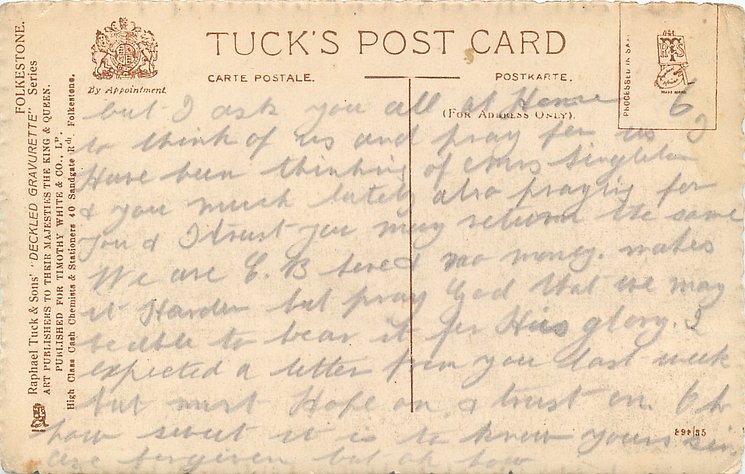 FOLKESTONE.
Raphael Tuck & Sons' "DECKLED GRAVURETTE" Series
ART PUBLISHERS TO THEIR MAJESTIES THE KING & QUEEN.
PUBLISHED FOR TIMOTHY WHITE & CO., Ld.
High Class Cash Chemists & Stationers 40 Sandgate Rd. Folkestone.
By Appointment
TUCK'S POST CARD
CARTE POSTALE.
POSTKARTE.
(FOR ADDRESS ONLY).
PROCESSED IN SA
6
but I ask you all at Home
to think of us and pray for us I
Have been thinking of Mrs Singleton
& you much lately also praying for
you & I trust you may return the same
We are C. B. & no money. makes
it Harder but pray God that we may
be able to bear it for His glory. I
expected a letter from you last week
but must Hope on & trust on. Oh
how sweet it is to know yours sin
are forgiven but oh how